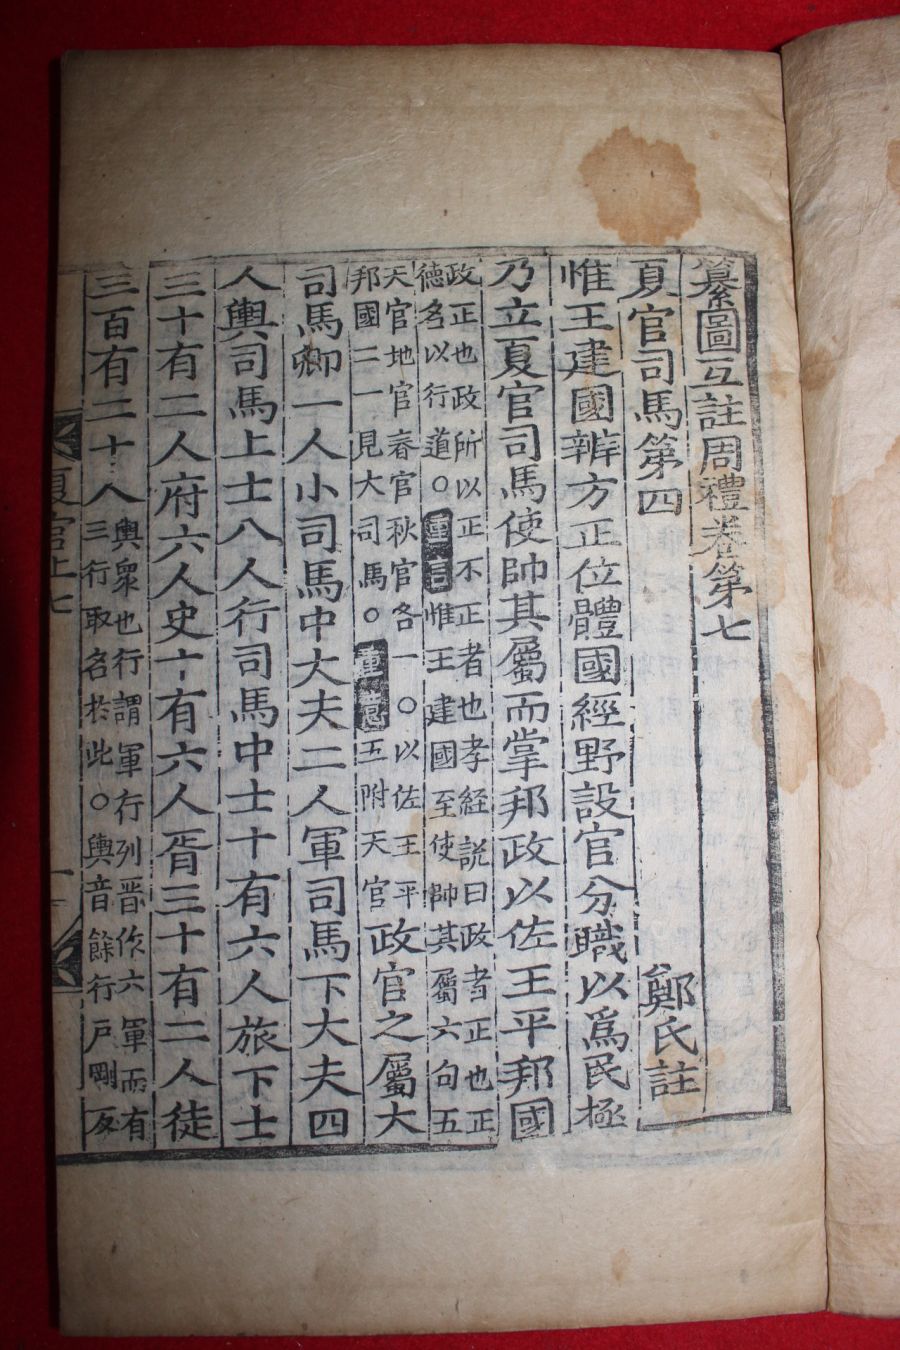 纂圖互註周禮卷第七
夏官司馬第四
鄭氏註
惟王建國辨方正位體國經野設官分職以爲民極
乃立夏官司馬使帥其屬而掌邦政以佐王平邦國
政正也政所以正不正者也孝經說曰政者正也正
德名以行道○重言惟王建國至使帥其屬六句五
天官地官春官秋官各一○以佐王平
邦國二一見大司馬○重意五附天官
政官之屬大
司馬卿一人小司馬中大夫二人軍司馬下大夫四
人輿司馬上士八人行司馬中士十有六人旅下士
三十有二人府六人史十有六人胥三十有二人徒
三百有二十人
輿衆也行謂軍行列晋作六軍而有
三行取名於此○輿音餘行戶剛反
夏官上七
一